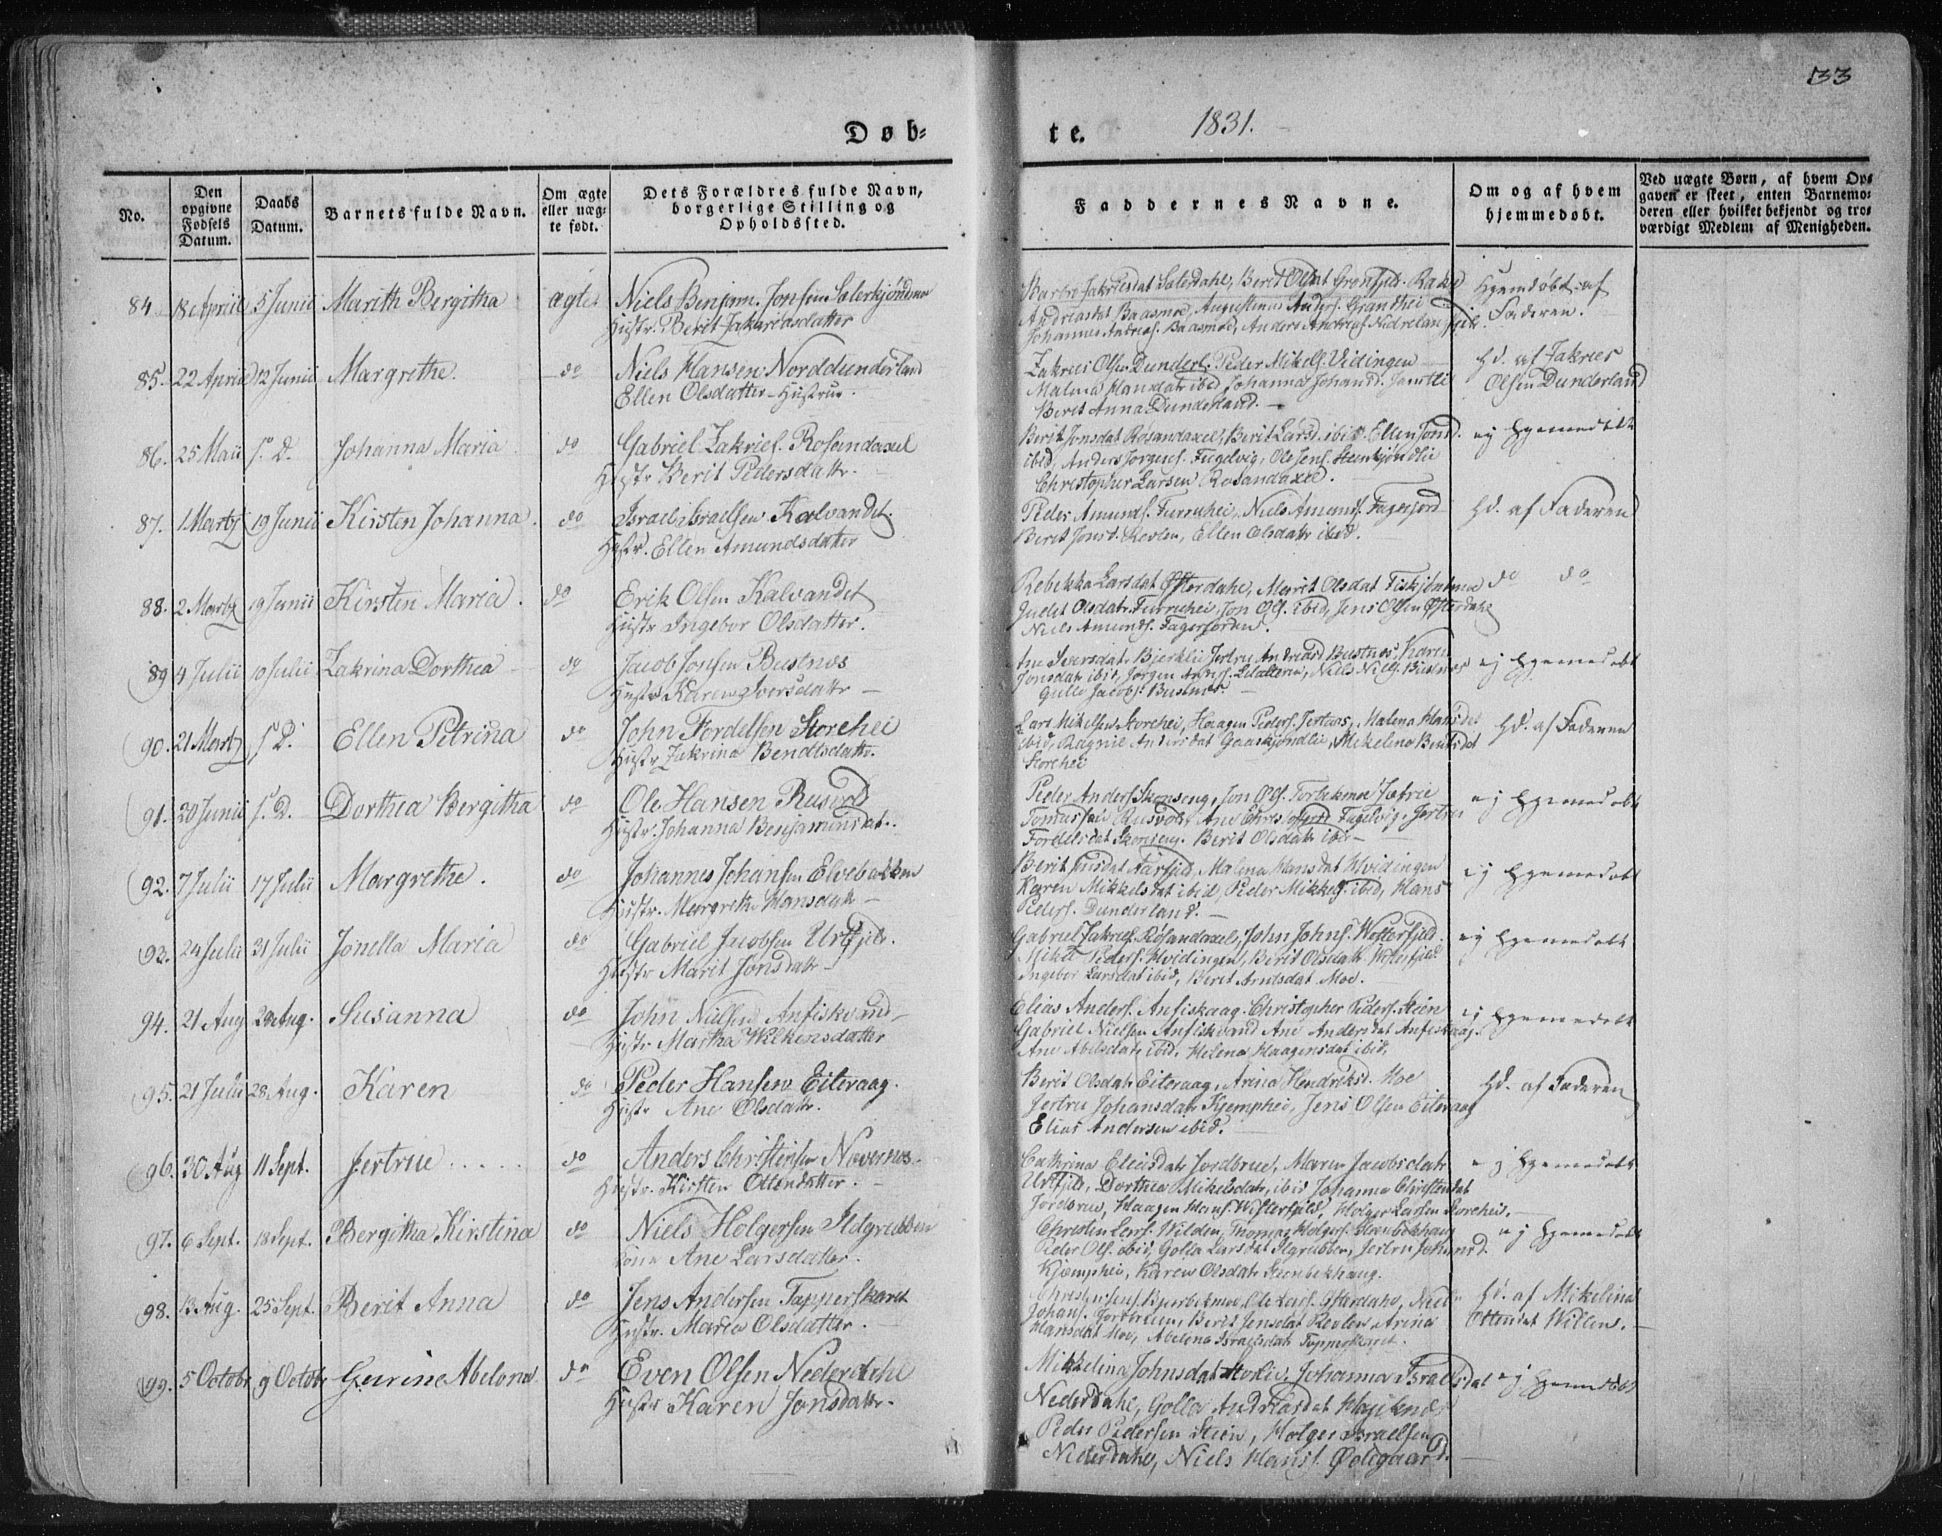 33
Døb-
te.
1831.
No.
Den opgivne Fødsels Datum.
Daabs Datum.
Barnets fulde Navn.
Om ægte eller uægte født.
Dets Forældres fulde Navn, borgerlige Stilling og Opholdssted.
Faddernes Navne.
Om og af hvem hjemmedøbt.
Ved uægte Børn, af hvem Opgaven er skeet, enten Barnemoderen eller hvilket bekjendt og troværdigt Medlem af Menigheden.
84. 18 April 5 Junii Marith Bergitha ægte Niels Benjam. Jonsen
Hustr. Berit Zakariasdatter
Hjemdøbt af
Faderen.
85. 22 April 12 Junii Margrethe. do Niels Hansen Norddunderland
Ellen Olsdatter Hustrue.
Zakries Olsen Dunderl. Peder Mikels. Vidingen
Malena Hansdatr ibid Johanna Johansd.
Berit Anna Dunderland.
Hd. af Zakries
Olsen Dunderland
86. 25 Maii s. D. Johanna Maria do Gabriel Zakries. Rosandaxel
Hustr Berit Pedersdattr.
Berit Jonsdat Rosandaxel, Berit Larsd. ibid. Ellen Jonsd.
ibid, Anders Jørgens. Fugelvig, Ole Jens. Stenkjøndlie
Christopher Larsen Rosandaxel.
ej hjemmedøbt
87. 1 Martj 19 Junii Kirsten Johanna. do Israel Israelsen Kalvandet.
Hustr. Ellen Amundsdatter
Peder Amunds. Furruhei, Niels Amunds. Fagerjord
Berit Jonsd. Revlen, Ellen Olsdatr ibid.
Hd. af Faderen
88. 2 Martj 19 Junii Kirsten Maria. do Erik Olsen Kalvandet
Hustr Ingebor Olsdatter.
Rebekka Larsdat Østerdahl, Marit Olsdat
Judit Olsdatr. Furruhei, Jon Ols. ibid, Jens Olsen Østerdahl
Niels Amunds. Fagerjorden.
do do
89 4 Julii 10 Julii Zakrina Dorthea do Jacob Jonsen Bustnes
Hustr Karen Iversdattr
Ane Iversdat. Bjerklie Jertru Andreasd Bustnes, Karen
Jonsdatr ibid, Jørgen Niels Niels. Bustnes
Gulle Jacobs. Bustnes.
ej hjemmedøbt
90. 21 Martj s. D. Ellen Petrina do John Fordelsen Storehei
Hustr Zakrina Bendtsdattr.
Lars Mikelsen Storehei, Haagen Peders. Malena Hansdat
ibid, Ragnil Andersdat Gaaskjøndlie, Mikelina Bentsdat
Storehei
Hd. af Faderen
91. 20 Junii s. D. Dorthea Bergitha do Ole Hansen Rusvold
Hustr. Johanna Benjaminsdat.
Peder Anders. Skonseng, Jon Ols.
Fugelvig, Jertru
Fordelsdat Skonseng. Berit Olsdatr ibid
ej hjemmedøbt
92. 7 Julii 17 Julii Margrethe. do Johannes Johansen Elvebakken
Hustr. Margrethe Hansdatr
Berit Malena Hansdat Hvidingen
Karen Mikkelsdat ibid, Peder Mikkels. ibid, Hans
Peders. Dunderland.
ej hjemmedøbt
93. 24 Julii 31 Julii Jonella Maria do Gabriel Jacobsen Urtfjeld.
Hustr Marit Jonsdattr
Gabriel Zakries. Rosandaxel, John Johns. Westerfjeld.
Mikel Peders. Hvidingen, Berit Olsdatr
Ingebor Larsdat ibid, Berit Arntsdat Moe.
ej hjemmedøbt
94. 21 Aug 28 Aug. Susanna do John Nielsen Anfiskvand
Hustr Martha Wilkensdatter
Elias Anders. Anfiskaag. Christopher Peders. Steen
Gabriel Nielsen Anfiskvand Ane Andersdat Anfiskaag.
Ane Abelsdatr ibid, Helena Haagensdat ibid.
ej hjemmedøbt
95. 21 Julii 28 Aug. Karen do Peder Hansen Eiteraag.
Hustr Ane Olsdattr.
Berit Olsdatr Eiteraag, Arina Hendriksd. Moe
Jertru Johansdatr Kjemphei, Jens Olsen Eiteraag
Elias Andersen ibid.
Hd. af Faderen
96. 30 Aug 11 Sept. Jertrue . . . . . do Anders Christensen Navernes.
Hustr. Kirsten Ottendatter.
Cathrina Eliasdatr Jordbrue, Maren Jacobsdatr
Urtfjeld, Dorthea Mikelsdatr, ibid Johanna Christensdat
Jordbrue, Haagen Hans. Westerfjeld, Holger Larsen Storehei.
ej hjemmedøbt
97. 6 Sept. 18 Sept. Bergitha Kirstina do Niels Holgersen Ildgrubben
Kone Ane Larsdatter.
Christin Lars. Wilden, Thomas Holgers.
Peder Ols. ibid, Golla Larsdat Ilgrubben, Jertru Johansd.
Kjæmphei, Karen Olsdatr Steenbekhaug.
ej hjemmedøbt
98. 13 Aug. 25 Sept. Berit Anna do Jens Andersen Tapperskaret
Hustr. Maria Olsdatter.
Ole Lars. Østerdahl, Niels
Johans. Berit Jensdatr Revlen Arina
Hansdat Moe, Abelena Israelsdatr Tapperskaret.
Hd. af Mikelina
Ottendat Willen.
99. 5 Octobr 9 Octobr Gurine Abelona do Even Olsen Nederdahl
Hustr Karen Jonsdattr.
Mikkelina Johnsdat Johanna Israelsdat
Nederdahl, Golla Andreasdat
Peder Pedersen Steen, Holger Israelsen
Nederdahl, Niels Hans. Øvlegaard.
ej hjemmedøbt